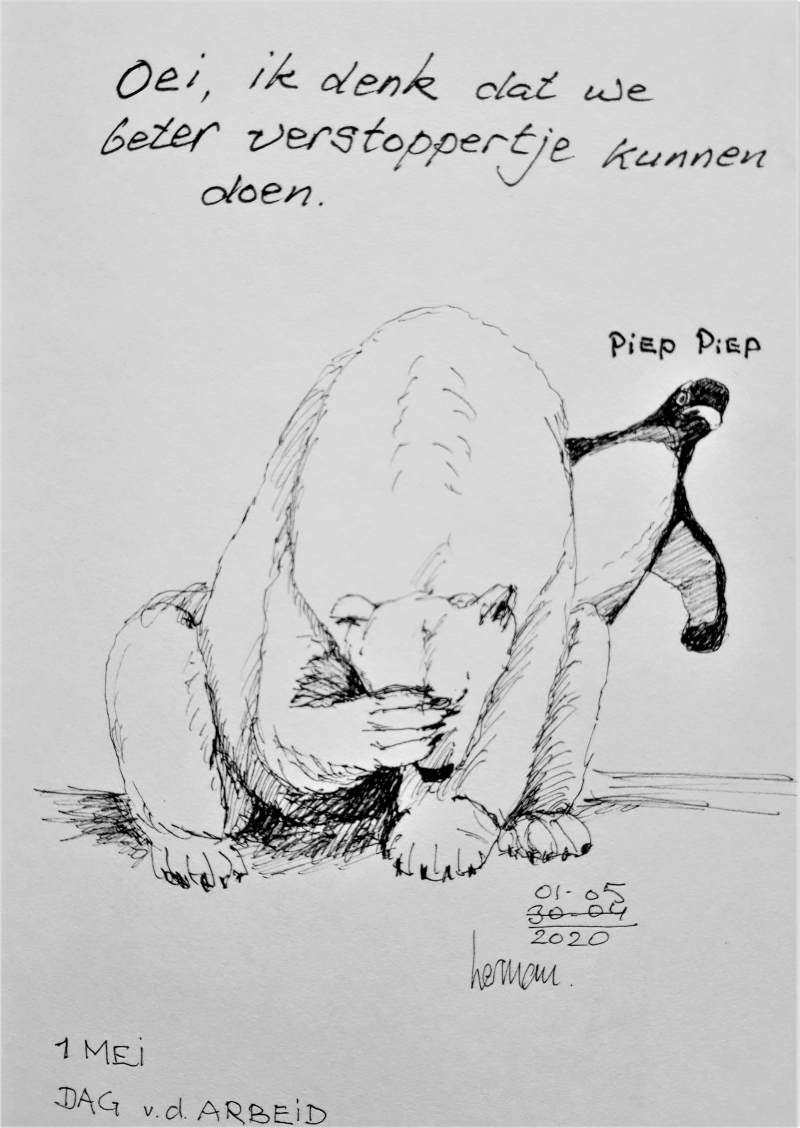 Oei, ik denk dat we
beter verstoppertje kunnen
doen.
PiEP PiEP
01-05
30-04
2020
herman.
1 MEi
DAG v.d. ARBEiD